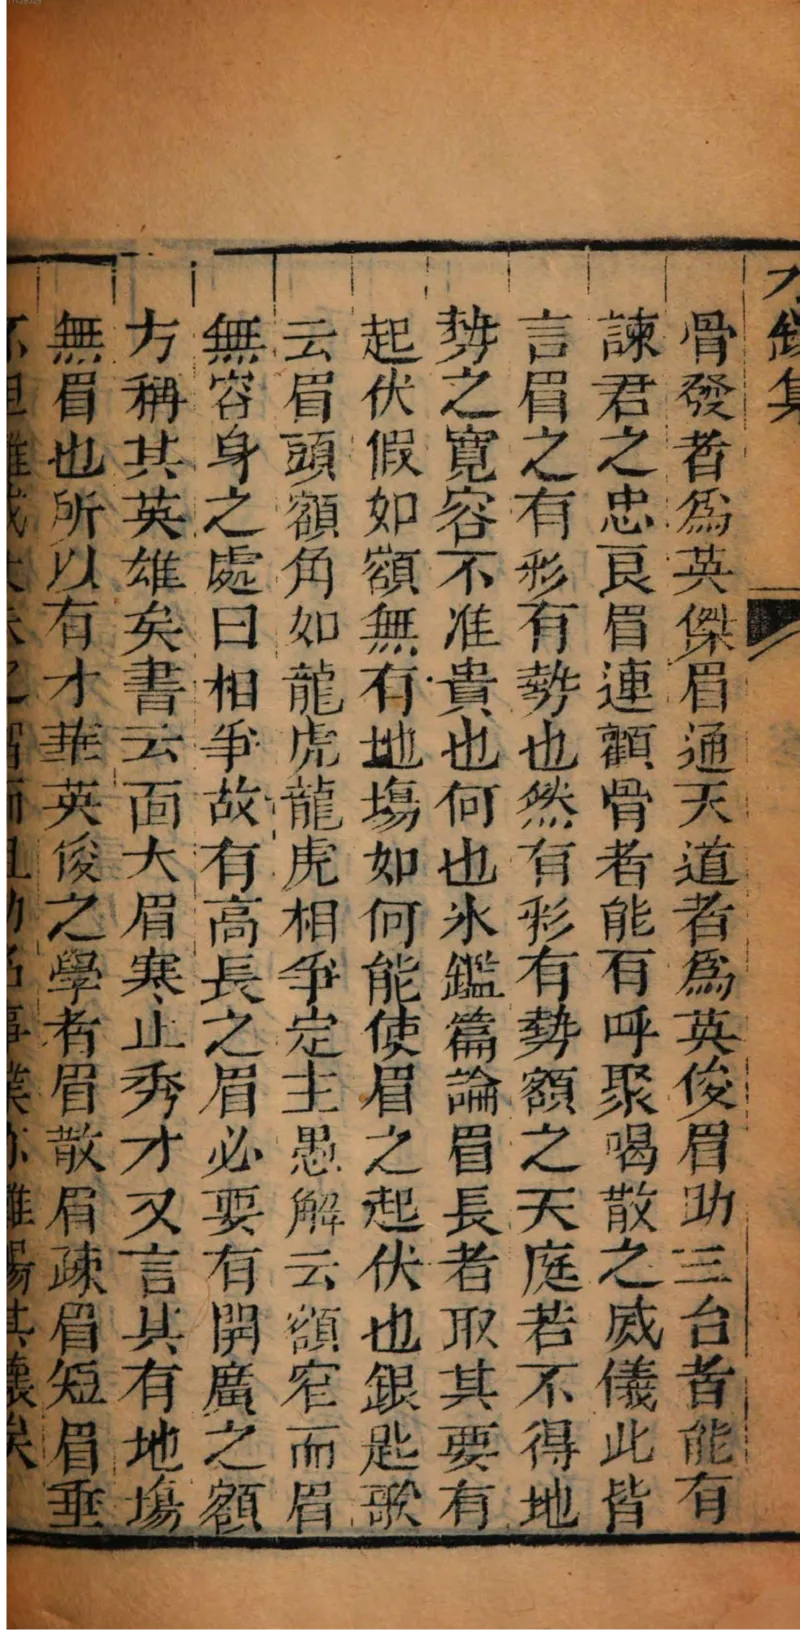 骨發者爲英傑眉通天道者爲英俊眉助三台者能有
諫君之忠良眉連顴骨者能有呼聚喝散之威儀此皆
言眉之有彩有勢也然有彩有勢額之天庭若不得地
勢之寬容不准貴也何也氷鑑篇論眉長者取其要有
起伏假如額無有地塲如何能使眉之起伏也銀匙歌
云眉頭額角如龍虎龍虎相爭定主愚解云額窄而眉
無容身之處曰相爭故有高長之眉必要有開廣之額
方稱其英雄矣書云面大眉寒止秀才又言其有地塲
無眉也所以有才華英俊之學者眉散眉疎眉短眉垂